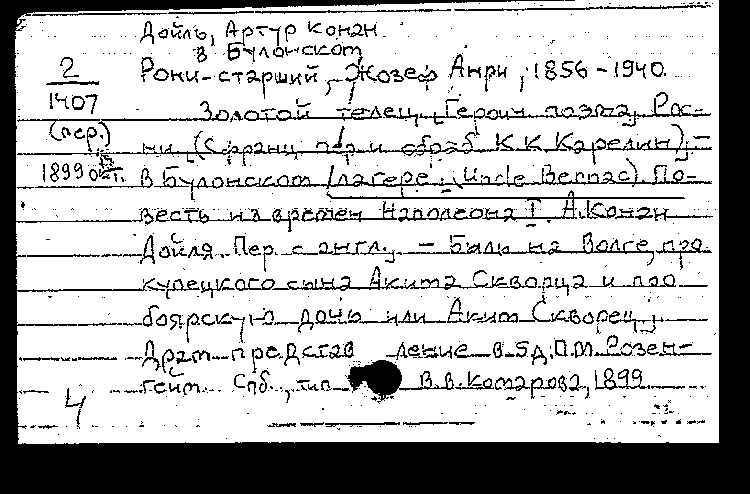 Дойль, Артур Конан
в Булонском
2 Рони-старший, Жозеф Анри, 1856-1940.
1407 Золотой телец. Героич поэма, Рос-
(пер.) ни, (С франц. пер и обраб К.К. Карелин); -
1899 окт. в Булонском лагере. (Uncle Bernac). По-
весть из времен Наполеона I. А.Конан
Дойля. Пер. с англ.; - Быль на Волге, про
купецкого сына Акима Скворца и про
боярскую дочь или Аким Скворец;
Драм представ ление в 5д. П.М. Розен-
гейм. Спб., тип В.В.Комарова, 1899
4